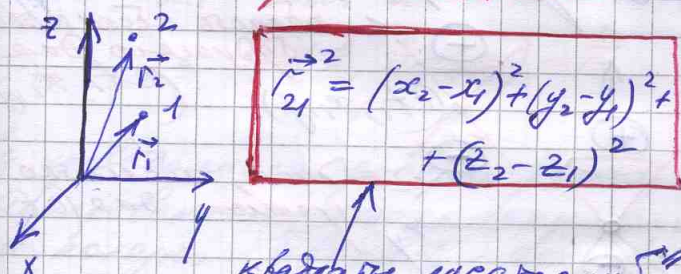 z
2
r⃗₂
1
r⃗₁
y
x
r⃗₂₁² = (x₂-x₁)² + (y₂-y₁)² +
+ (z₂-z₁)²